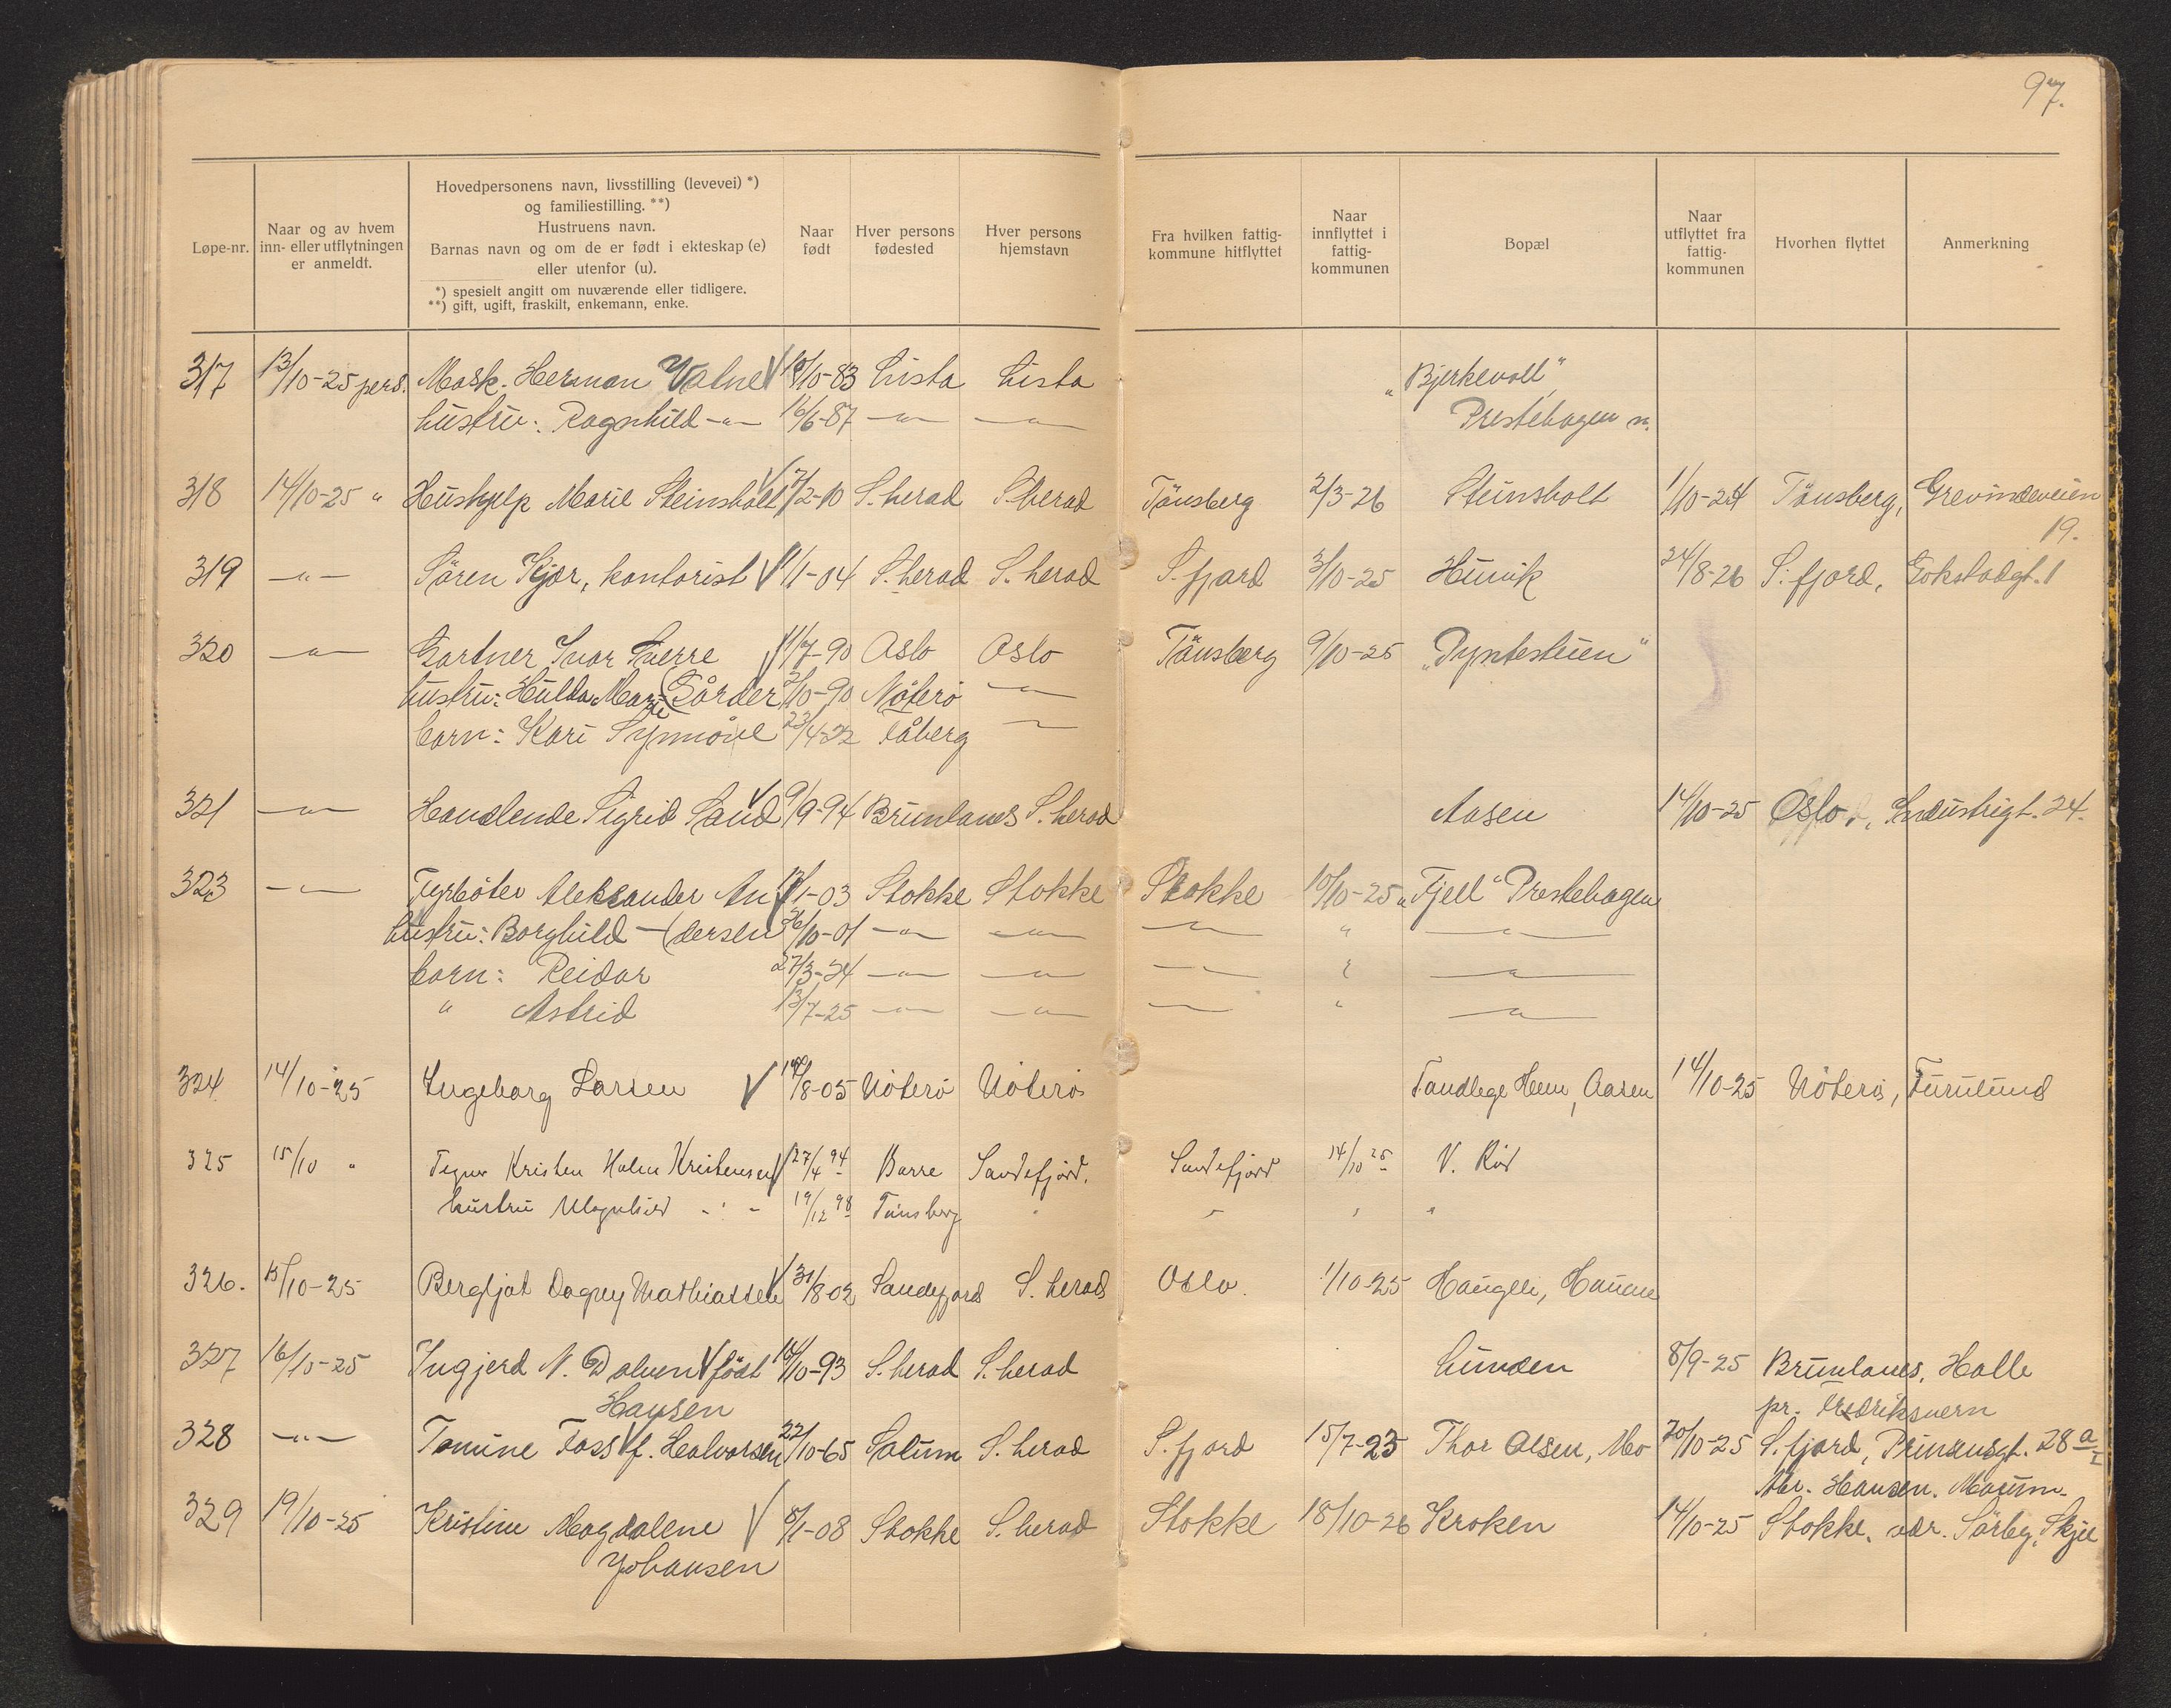 97.
Løpe-nr.
Naar og av hvem
inn- eller utflytningen
er anmeldt.
Hovedpersonens navn, livsstilling (levevei) *)
og familiestilling. **)
Hustruens navn.
Barnas navn og om de er født i ekteskap (e)
eller utenfor (u).
*) spesielt angitt om nuværende eller tidligere.
**) gift, ugift, fraskilt, enkemann, enke.
Naar
født
Hver persons
fødested
Hver persons
hjemstavn
Fra hvilken fattig-
kommune hitflyttet
Naar
innflyttet i
fattig-
kommunen
Bopæl
Naar
utflyttet fra
fattig-
kommunen
Hvorhen flyttet
Anmerkning
317 13/10-25 pers. Mask. Herman Valne 10-83 Lista Lista "Bjerkevoll"
hustru: Ragnhild -"- 16/6-87 -"- -"- Prestehagen n.
318 14/10-25 " Hushjelp Marie Steinsholt 7/2-10 S. herad S. herad Tönsberg 2/3-26 Steinsholt 1/10-24 Tönsberg, Grevindeveien
19.
319 -"- Sören Kjær, kontorist 1/1-04 S. herad S. herad S. fjord 3/10-25 Hunvik 24/8-26 S. fjord, Gokstadgt. 1
320 -"- Gartner Ivar Sverre 11/7-90 Oslo Oslo Tönsberg 9/10-25
hustru: Hulda Marie (Gårder 10-90 Nöterö -"-
barn: Kari Synnöve 23/4-22 Fåberg -"-
321 -"- Handlende Sigrid Sand 9/9-94 Brunlanes S. herad Aasen 14/10-25 Oslo, Industrigt. 24.
323 -"- Fyrböter Aleksander An 1-03 Stokke Stokke Stokke 10/10-25 "Fjell" Prestehagen
hustru: Borghild - (dersen 26/10-01 -"- -"- -"- " -"-
barn: Reidar 27/3-24 -"- -"- -"- " -"-
" Astrid 13/7-25 -"- -"- -"- " -"-
324 14/10-25 Ingeborg Larsen 8-05 Nöterö Nöterö Tandlege Hem, Aasen 14/10-25 Nöterö, Furulund
325 15/10 " Kristen Holm Kristensen 27/4 94 Borre Sandefjord. Sandefjord 14/10 25 V. Röd
hustru Magnhild - " - 19/12 98 Tönsberg " " " "
326. 15/10-25 Bergljot Dagny Mathiassen 31/8-02 Sandefjord S. herad Oslo. 1/10-25 Haugen,
327 16/10-25 Ingjerd N. Dalven född 14/10-93 S. herad S. herad Lunden 8/9-25 Brunlanes, Halle
Hansen pr. Fredriksvern
328 -"- Tomine Foss f. Halvorsen 22/10-65 Solum S. herad S. fjord 15/7-23 Thor Olsen, Mo 20/10-25 S. fjord, Prinsensgt. 28 a I
Abr. Hansen.
329 19/10-25 Kristine Magdalene 8/1-08 Stokke S. herad Stokke 18/10-26 Kroken 14/10-25 Stokke, adr. Sörby, Skjee
Johansen